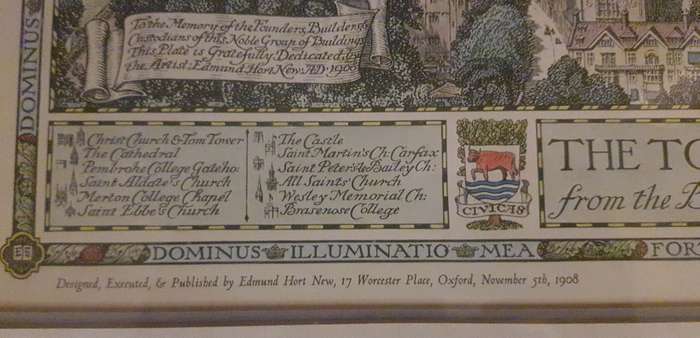 DOMINUS
To the Memory of the Founders, Builders &
Custodians of this Noble Group of Buildings
This Plate is Gratefully Dedicated, by
the Artist: Edmund Hort New: AD: 1908
Christ Church & Tom Tower
The Cathedral
Pembroke College Gateho:
Saint Aldate's Church
Merton College Chapel
Saint Ebbe's Church
The Castle
Saint Martin's Ch: Carfax
Saint Peter-le-Bailey Ch:
All Saints Church
Wesley Memorial Ch:
Brasenose College
CIVITAS
THE TO
from the
DOMINUS ILLUMINATIO MEA
FOR
Designed, Executed, & Published by Edmund Hort New, 17 Worcester Place, Oxford, November 5th, 1908